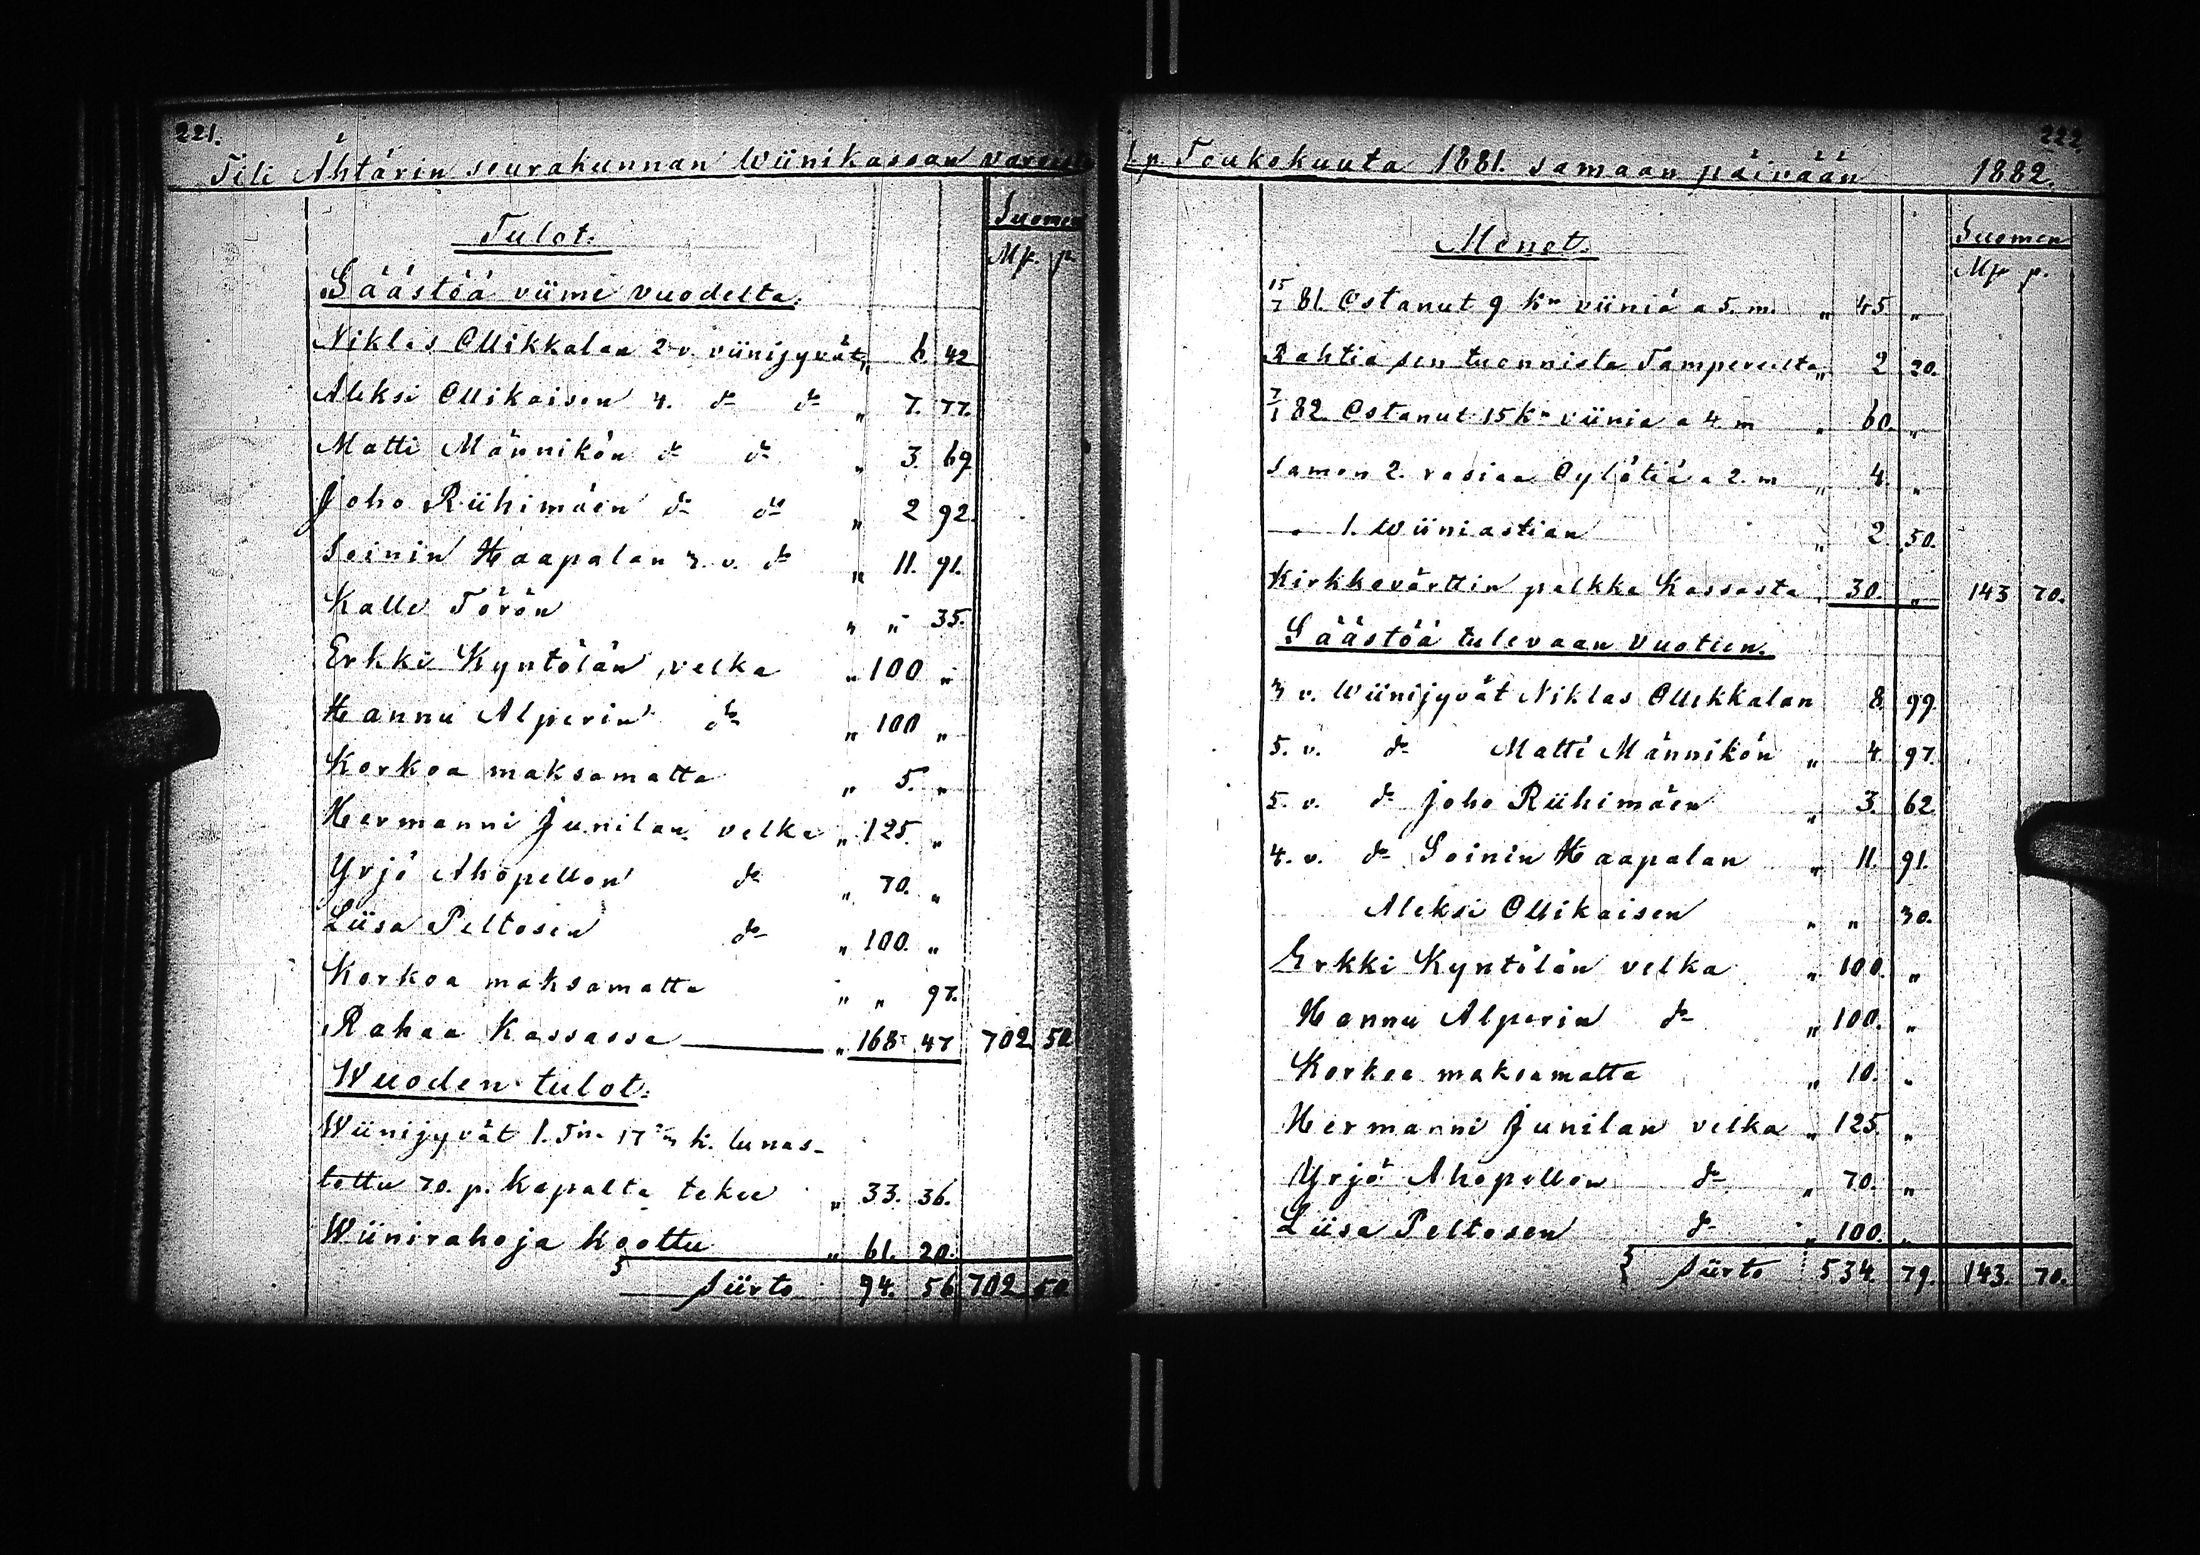 221.
Tili Ähtärin seurahunnan Wiinikassan varoista
Tulot.
Suomen
Mk. p.
Säästöä viime vuodelta.
Niklas Ollikkalan 2 v. viinijyvät „ 6. 42
Aleksi Ollikaisen 4. do do „ 7. 77.
Matti Männikön do do „ 3. 69
Joho Riihimäen do do „ 2 92.
Soinin Haapalan 3. v. do „ 11. 91.
Kalle Törön „ „ 35.
Erkki Kyntölän velka „ 100 „
Hannu Alperin do „ 100 „
Korkoa maksamatta „ 5. „
Hermanni Junilan velka „ 125. „
Yrjö Ahopellon do „ 70. „
Liisa Peltosen do „ 100. „
Korkoa maksamatta „ „ 97.
Rahaa Kassassa „ 168 47 702 50
Wuoden tulot.
Wiinijyvät 1. Tn. 17 k. lunas-
tettu 70. p. kapalta tekee „ 33. 36.
Wiinirahoja koottu „ 61. 20.
Siirto 94. 56 702 50
222.
1 p. Toukokuuta 1881. samaan päivään 1882.
Menot.
Suomen
Mk p.
15/7 81. Ostanut 9 kn viiniä a 5. m. „ 45 „
Rahtia sen tuonnista Tampereelta „ 2 20.
7/1 82. Ostanut 15 kn viiniä a 4 m „ 60. „
Samon 2. rasiaa Öylätiä a 2. m „ 4. „
„ 1. Wiiniastian „ 2. 50.
Kirkkovärttin palkka Kassasta „ 30. „ 143 70.
Säästöä tulevaan Vuoteen.
3 v. Wiinijyvät Niklas Ollikkalan 8. 99.
5. v. do Matti Männikön „ 4. 97.
5. v. do Joho Riihimäen „ 3. 62
4. v. do Soinin Haapalan „ 11. 91.
Aleksi Ollikaisen „ „ 30.
Erkki Kyntölän velka „ 100. „
Hannu Alperin do „ 100. „
Korkoa maksamatta „ 10. „
Hermanni Junilan velka „ 125. „
Yrjö Ahopellon do „ 70. „
Liisa Peltosen do „ 100. „
Siirto 534. 79. 143. 70.